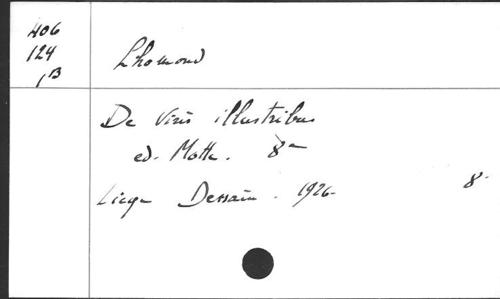 406
124
1B
Lhomond
De Viris illustribus
ed. Motte. 8a
Liège Dessain. 1926.
8.